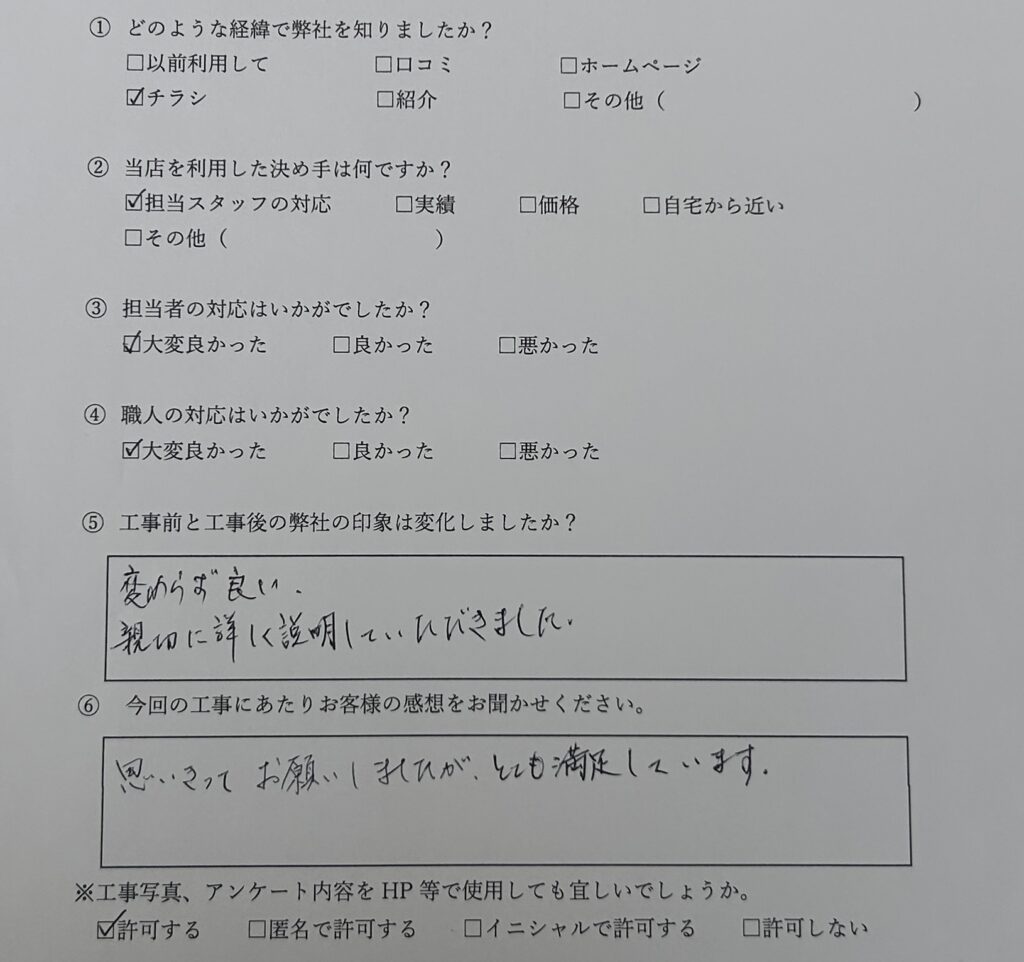 ① どのような経緯で弊社を知りましたか？
□以前利用して □口コミ □ホームページ
☑チラシ □紹介 □その他（ ）
② 当店を利用した決め手は何ですか？
☑担当スタッフの対応 □実績 □価格 □自宅から近い
□その他（ ）
③ 担当者の対応はいかがでしたか？
☑大変良かった □良かった □悪かった
④ 職人の対応はいかがでしたか？
☑大変良かった □良かった □悪かった
⑤ 工事前と工事後の弊社の印象は変化しましたか？
変わらず良い.
親切に詳しく説明していただきました.
⑥ 今回の工事にあたりお客様の感想をお聞かせください。
思いきって お願いしましたが、とても満足しています.
※工事写真、アンケート内容を HP 等で使用しても宜しいでしょうか。
☑許可する □匿名で許可する □イニシャルで許可する □許可しない